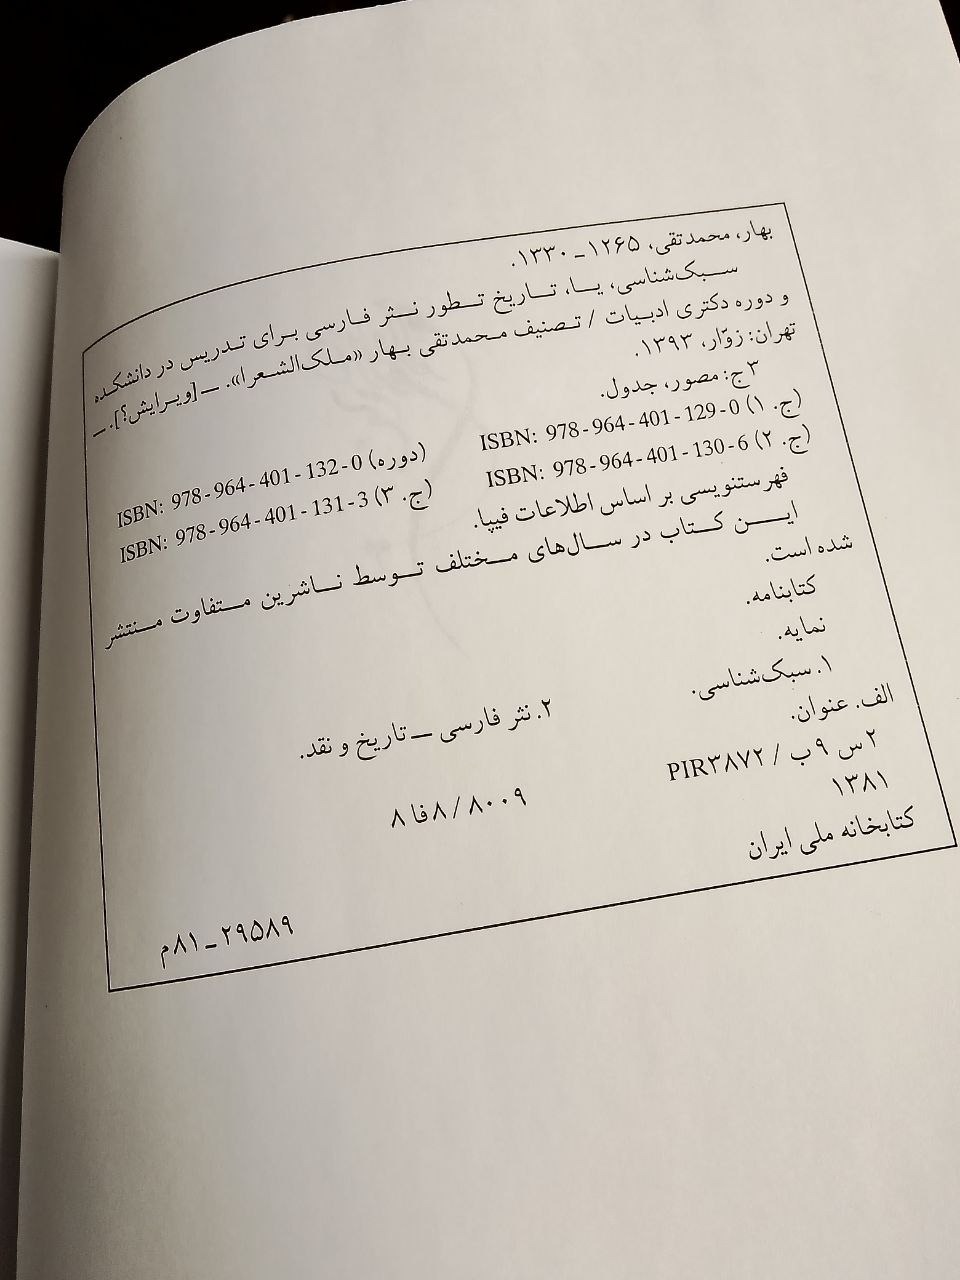 بهار، محمدتقی، ۱۲۶۵ـ۱۳۳۰.
سبک‌شناسی، یا، تاریخ تطور نثر فارسی برای تدریس در دانشکده
و دوره دکتری ادبیات / تصنیف محمدتقی بهار «ملک‌الشعرا». ــ [ویرایش؟]. ــ
تهران: زوّار، ۱۳۹۳.
۳ج: مصور، جدول.
ISBN: 978-964-401-129-0 (ج. ۱) ISBN: 978-964-401-132-0 (دوره)
ISBN: 978-964-401-130-6 (ج. ۲) ISBN: 978-964-401-131-3 (ج. ۳)
فهرستنویسی بر اساس اطلاعات فیپا.
این کتاب در سال‌های مختلف توسط ناشرین متفاوت منتشر
شده است.
کتابنامه.
نمایه.
۱. سبک‌شناسی. ۲. نثر فارسی ــ تاریخ و نقد.
الف. عنوان.
۲س ۹ب / PIR۳۸۷۲ ۸۰۰۹ / ۸فا۸
۱۳۸۱
کتابخانه ملی ایران
۲۹۵۸۹ـ۸۱م